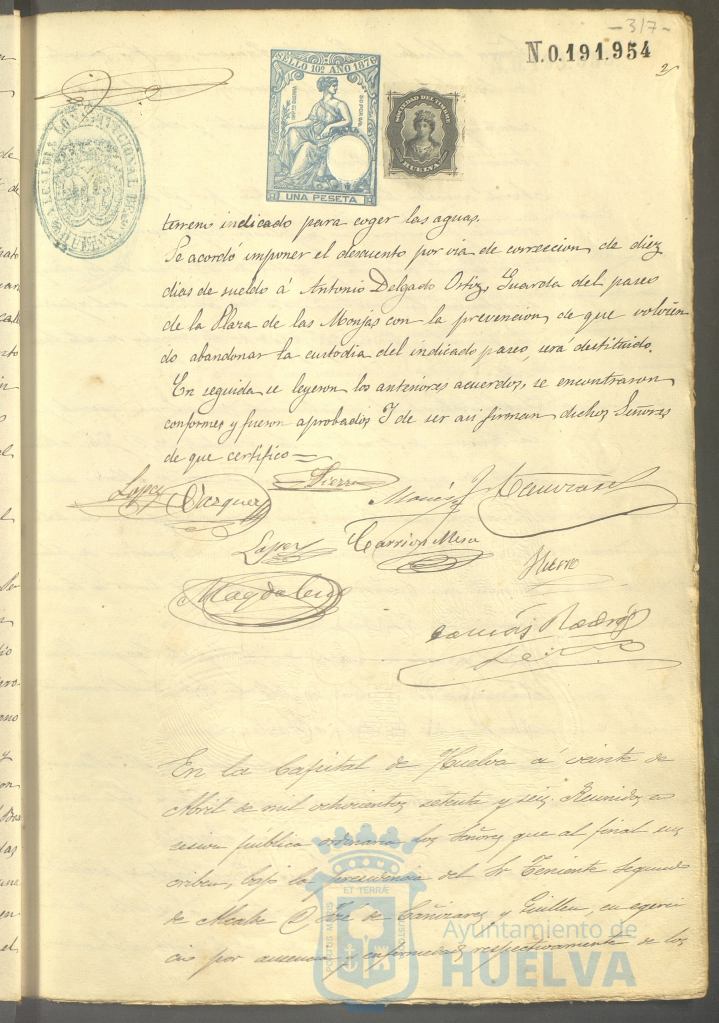 - 317 -
N.0.191.954
2
SELLO 10º AÑO 1876
UNA PESETA
SOCIEDAD DEL TIMBRE
HUELVA
ALCALDIA CONSTITUCIONAL
HUELVA
terreno indicado para coger las aguas.
Se acordó imponer el descuento por via de correccion, de diez
dias de sueldo á Antonio Delgado Ortiz, Guarda del paseo
de la Plaza de las Monjas con la prevencion, de que volvien
do abandonar la custodia del indicado paseo, será destituido.
En seguida se leyeron los anteriores acuerdos, se encontraron
conformes y fueron aprobados Y de ser asi firman dichos Señores
de que certifico=
Lopez Vazquez
Sierra
Lopez
Carrion Mesa
Hierro
Magdalena
Tomás Rodrig
En la Capital de Huelva á veinte de
Abril de mil ochocientos setenta y seis. Reunidos en
sesion publica ordinaria los Señores que al final sus
criben, bajo la presidencia del Sr Teniente Segundo
de Alcalde D José de Cañizares y Guillen, en egerci
cio por ausencia y enfermedad respectivamente de los
PORTUS MARIS
ET TERRÆ
CUSTODIA
Ayuntamiento de
HUELVA